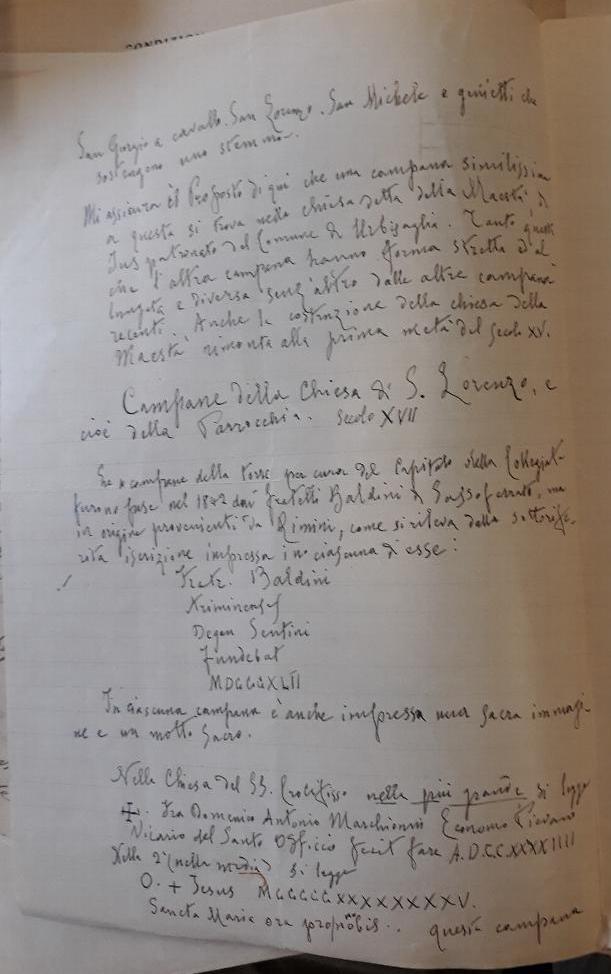 CONDIZION
San Giorgio a cavallo. San Lorenzo. San Michele e genietti che
sostengono uno stemma.
Mi assicura il Proposto di qui che una campana similissima
a questa si trova nella chiesa detta della Maestà di
Jus patronato del Comune di Urbisaglia. Tanto questa
che l'altra campana hanno forma stretta ed al
lungata e diversa senz'altro dalle altre campane
recenti. Anche la costruzione della chiesa della
Maestà rimonta alla prima metà del secolo XV.
Campane della Chiesa di S. Lorenzo, e
cioè della Parrocchia. Secolo XVII
Le campane della torre per cura del Capitolo della Collegiata
furono fuse nel 1842 dai fratelli Baldini di Sassoferrato, ma
in origine provenienti da Rimini, come si rileva dalla sottorife
rita iscrizione impressa in ciascuna d'esse:
Fratr. Baldini
Ariminenses
Degen Sentini
Fundebat
MDCCCXLII
In ciascuna campana è anche impressa una sacra immagi
ne e un motto sacro.
Nella Chiesa del SS. Crocifisso nella più grande si legge
+. Fra Domenico Antonio Marchionni Economo Pievano
Vicario del Santo Officio fecit fare A.D.C.C.XXXXIIII
Nella 2ª (nella media) si legge
O. + Jesus MCCCCCXXXXXXXXV.
Sancta Maria ora pro nobis.. questa campana